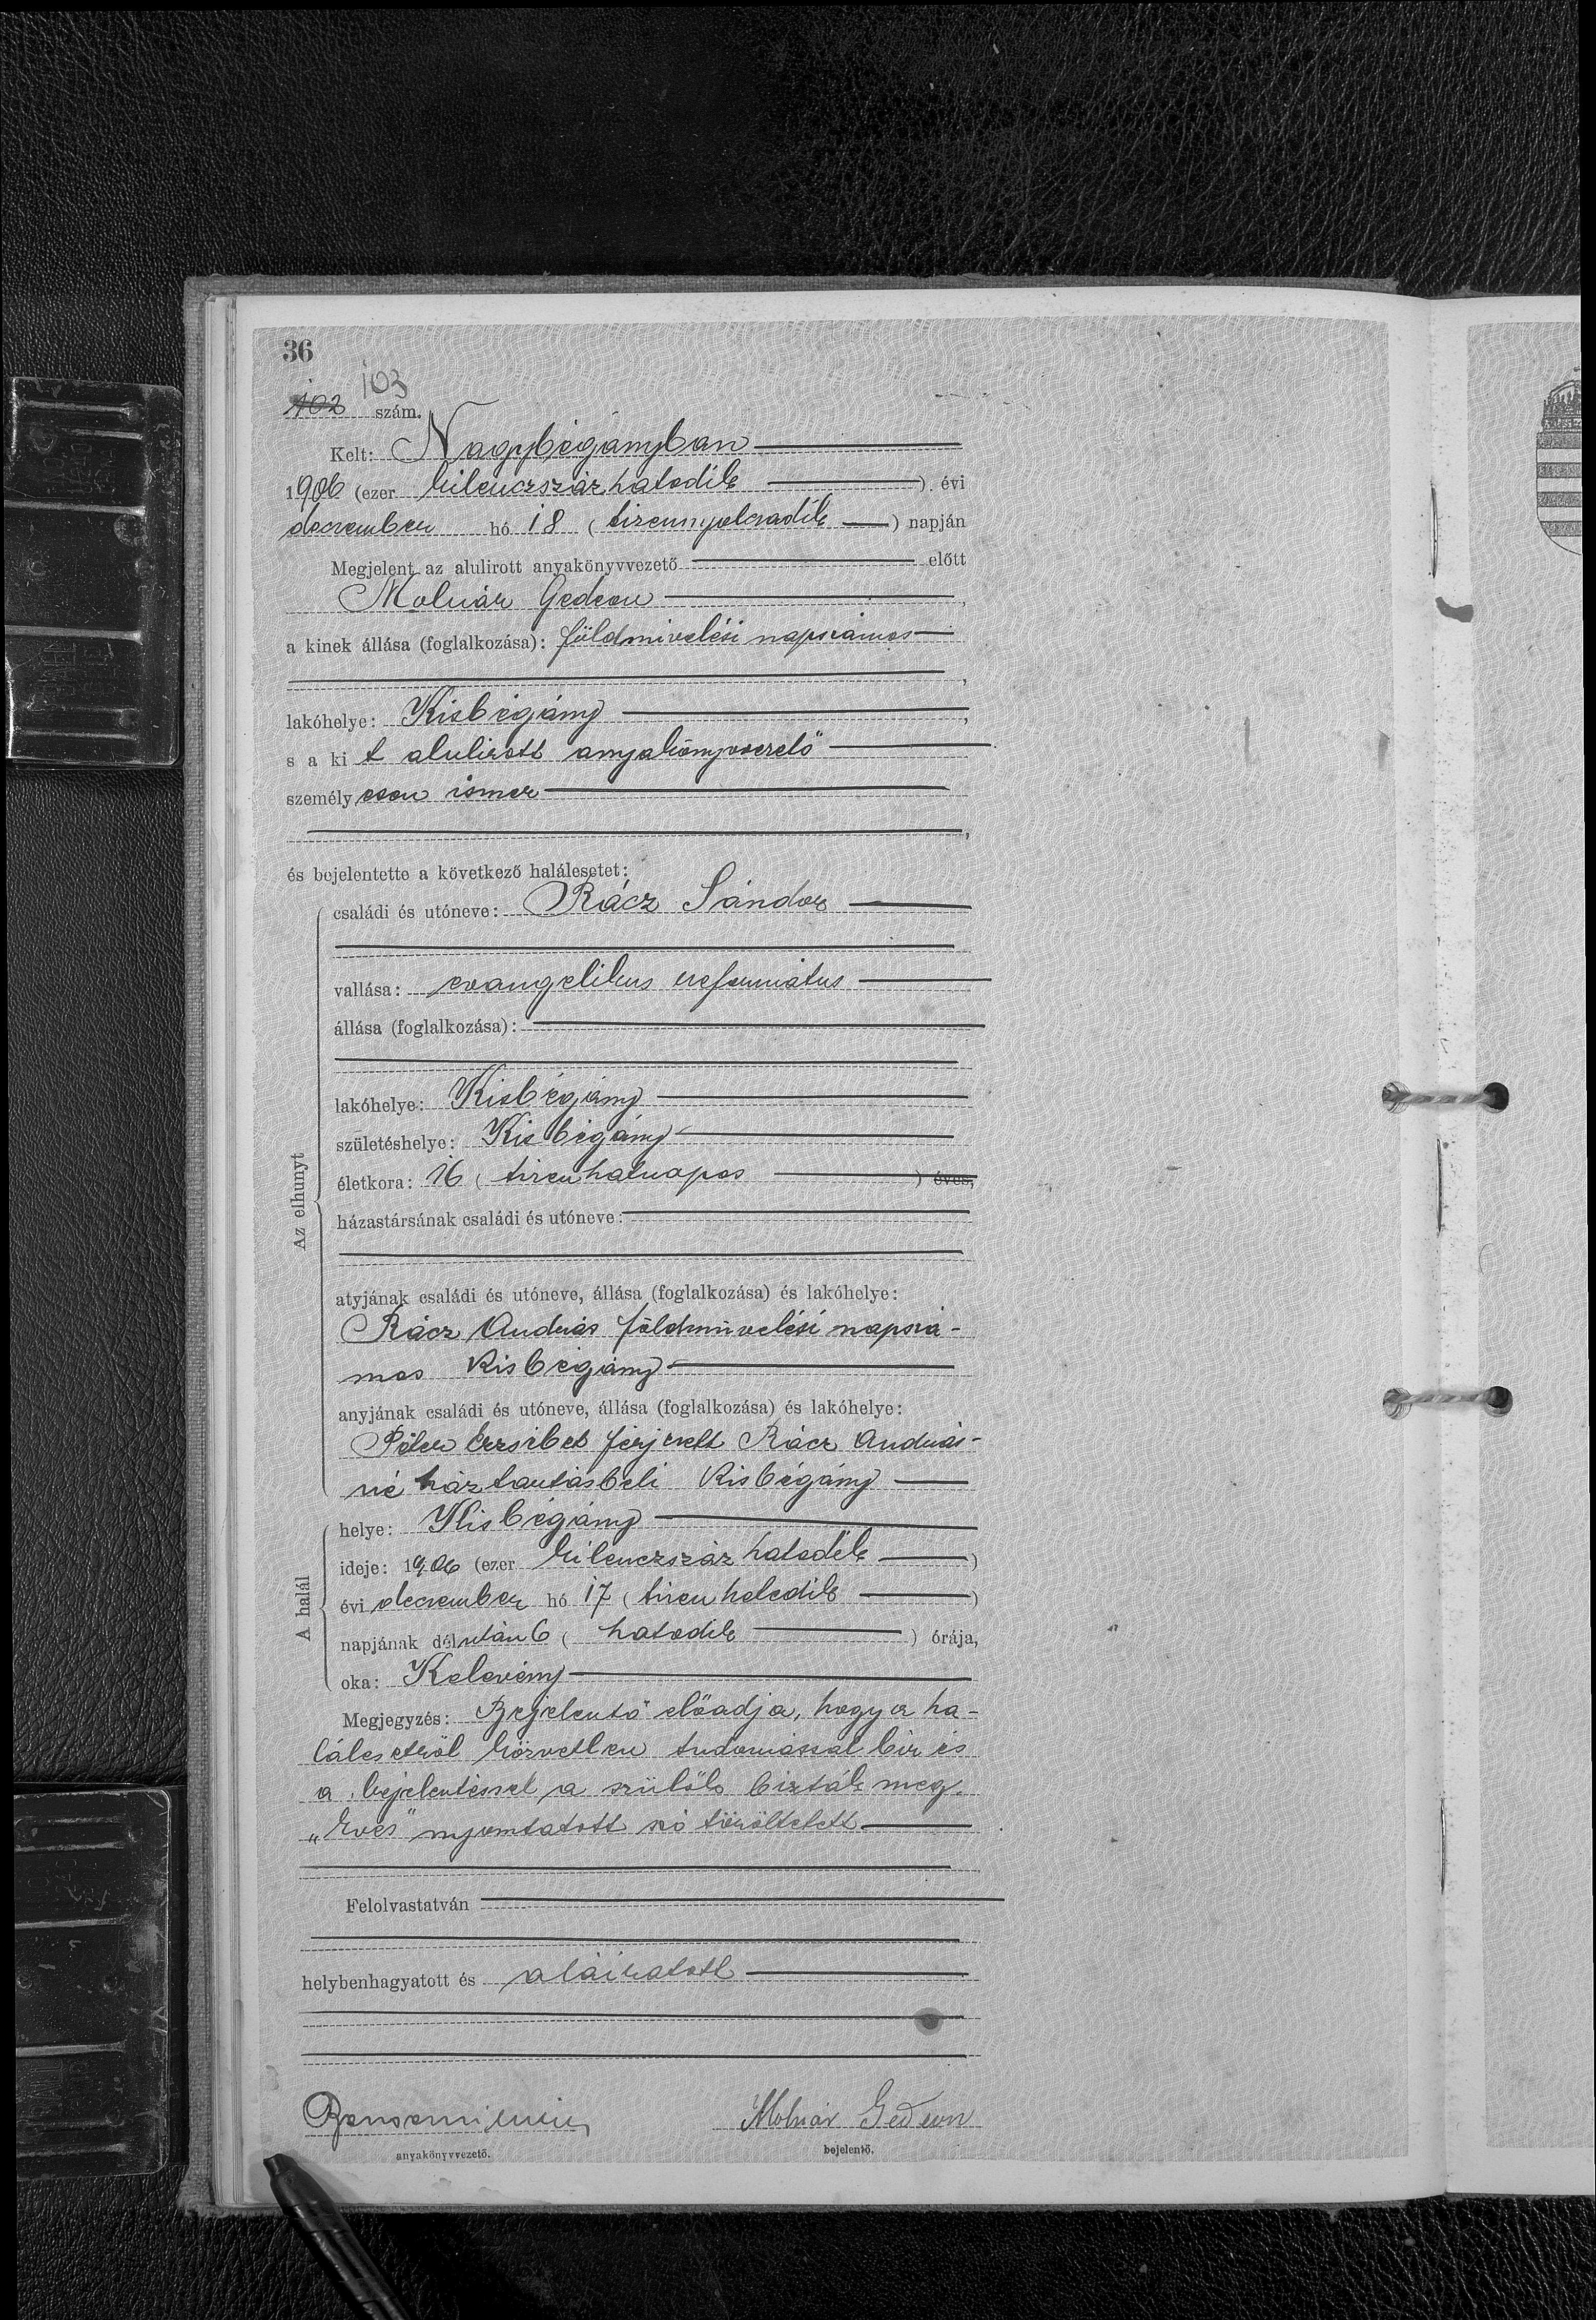 36
103
102 szám.
Kelt: Nagybégányban
1906 (ezer kilenczszázhatodik ). évi
december hó 18 ( tizennyolczadik ) napján
Megjelent az alulirott anyakönyvvezető előtt
Molnár Gedeon ,
a kinek állása (foglalkozása): földmivelési napszámos
,
lakóhelye: Kisbégány ,
s a ki t alulirott anyakönyvvezető
személyesen ismer
,
és bejelentette a következő halálesetet:
Az elhunyt
családi és utóneve: Rácz Sándor
vallása: evangelikus református
állása (foglalkozása):
lakóhelye: Kisbégány
születéshelye: Kisbégány
életkora: 16 ( tizenhatnapos ) éves,
házastársának családi és utóneve:
atyjának családi és utóneve, állása (foglalkozása) és lakóhelye:
Rácz András földmüvelési napszá-
mos Kisbégány
anyjának családi és utóneve, állása (foglalkozása) és lakóhelye:
Péter Erzsébet férjezett Rácz András-
né háztartásbeli Kisbégány
A halál
helye: Kisbégány
ideje: 1906 (ezer kilenczszázhatodik )
évi december hó 17 ( tizenhetedik )
napjának délután 6 ( hatodik ) órája,
oka: Kelevény
Megjegyzés: Bejelentő előadja, hogy a ha-
lálesetről közvetlen tudomással bir és
a bejelentéssel a szülők bizták meg.
„éves" nyomtatott szó töröltetett
Felolvastatván
helybenhagyatott és aláiratott
Molnár Gedeon
anyakönyvvezető. bejelentő.